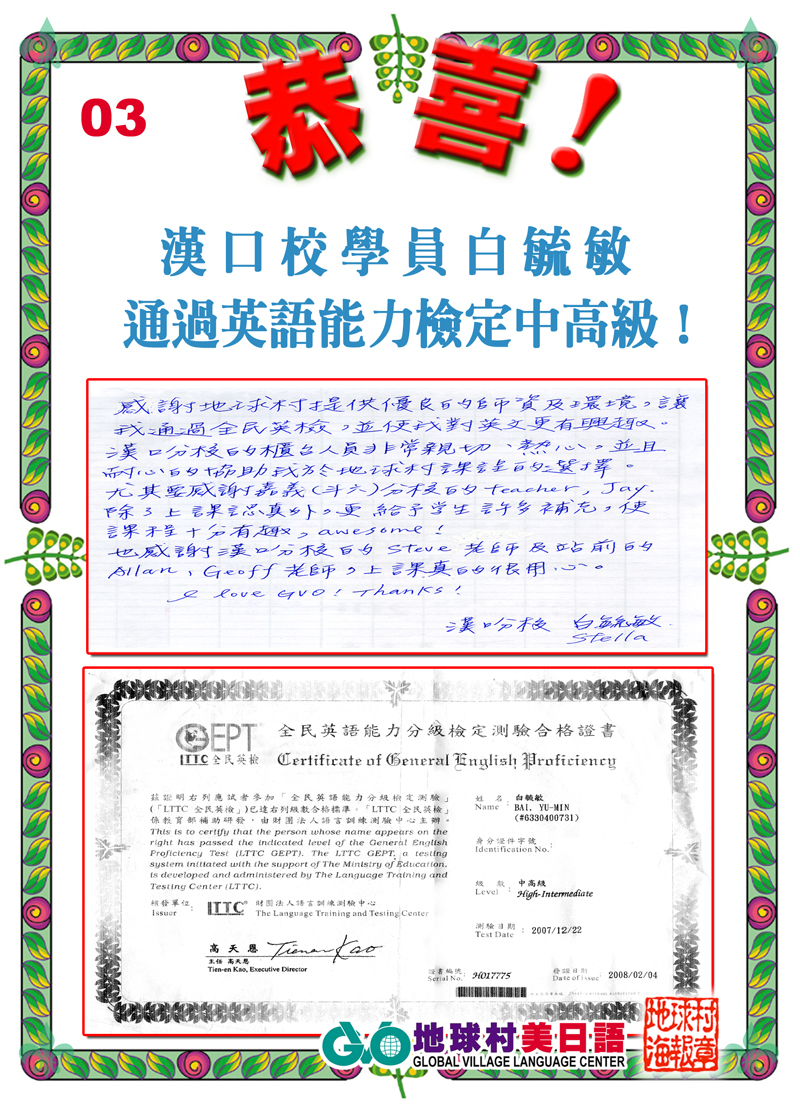 恭喜!
03
漢口校學員白毓敏
通過英語能力檢定中高級！
感謝地球村提供優良的師資及環境，讓
我通過全民英檢，並使我對英文更有興趣。
漢口分校的櫃台人員非常親切、熱心，並且
耐心的協助我於地球村課註的選擇。
尤其要感謝嘉義(斗六)分校的teacher, Jay.
除了上課認真外，更給予學生許多補充，使
課程十分有趣，awesome!
也感謝漢口分校的Steve老師及站前的
Allan、Geoff老師，上課真的很用心。
I love GVO! Thanks!
漢口分校 白毓敏.
Stella
GEPT
LTTC 全民英檢
全民英語能力分級檢定測驗合格證書
Certificate of General English Proficiency
茲證明右列應試者參加「全民英語能力分級檢定測驗」
(「LTTC 全民英檢」)已達右列級數合格標準。「LTTC 全民英檢」
係教育部補助研發，由財團法人語言訓練測驗中心主辦。
This is to certify that the person whose name appears on the
right has passed the indicated level of the General English
Proficiency Test (LTTC GEPT). The LTTC GEPT, a testing
system initiated with the support of The Ministry of Education,
is developed and administered by The Language Training and
Testing Center (LTTC).
核發單位:
Issuer
LTTC
財團法人語言訓練測驗中心
The Language Training and Testing Center
高天恩 Tien-en Kao
主任 高天恩
Tien-en Kao, Executive Director
姓名: 白毓敏
Name BAI, YU-MIN
(#6330400731)
身分證件字號
Identification No.:
級數: 中高級
Level High-Intermediate
測驗日期: 2007/12/22
Test Date
證書編號: H017775
Serial No.
發證日期: 2008/02/04
Date of Issue
GVO 地球村美日語
GLOBAL VILLAGE LANGUAGE CENTER
地球村
海報章